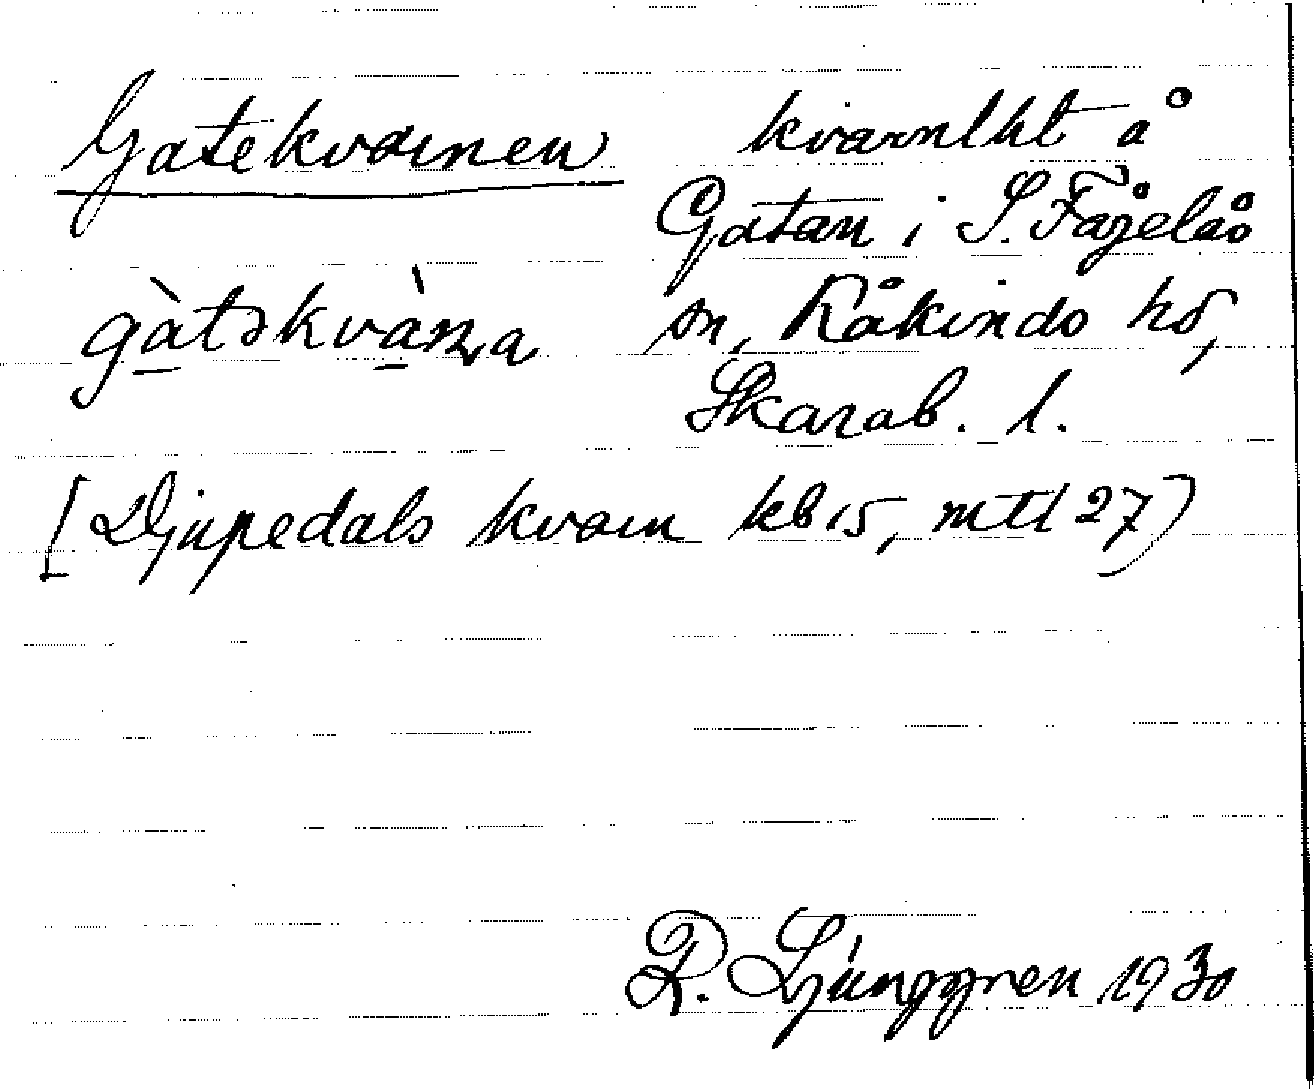 Gatekvarnen kvarnlht å
Gatan i S. Fågelås
sn, Kåkinds hd,
gàtəkvàṇa
Skarab. l.
[Djupedals kvarn kb 15, mtl 27)
R. Ljunggren 1930